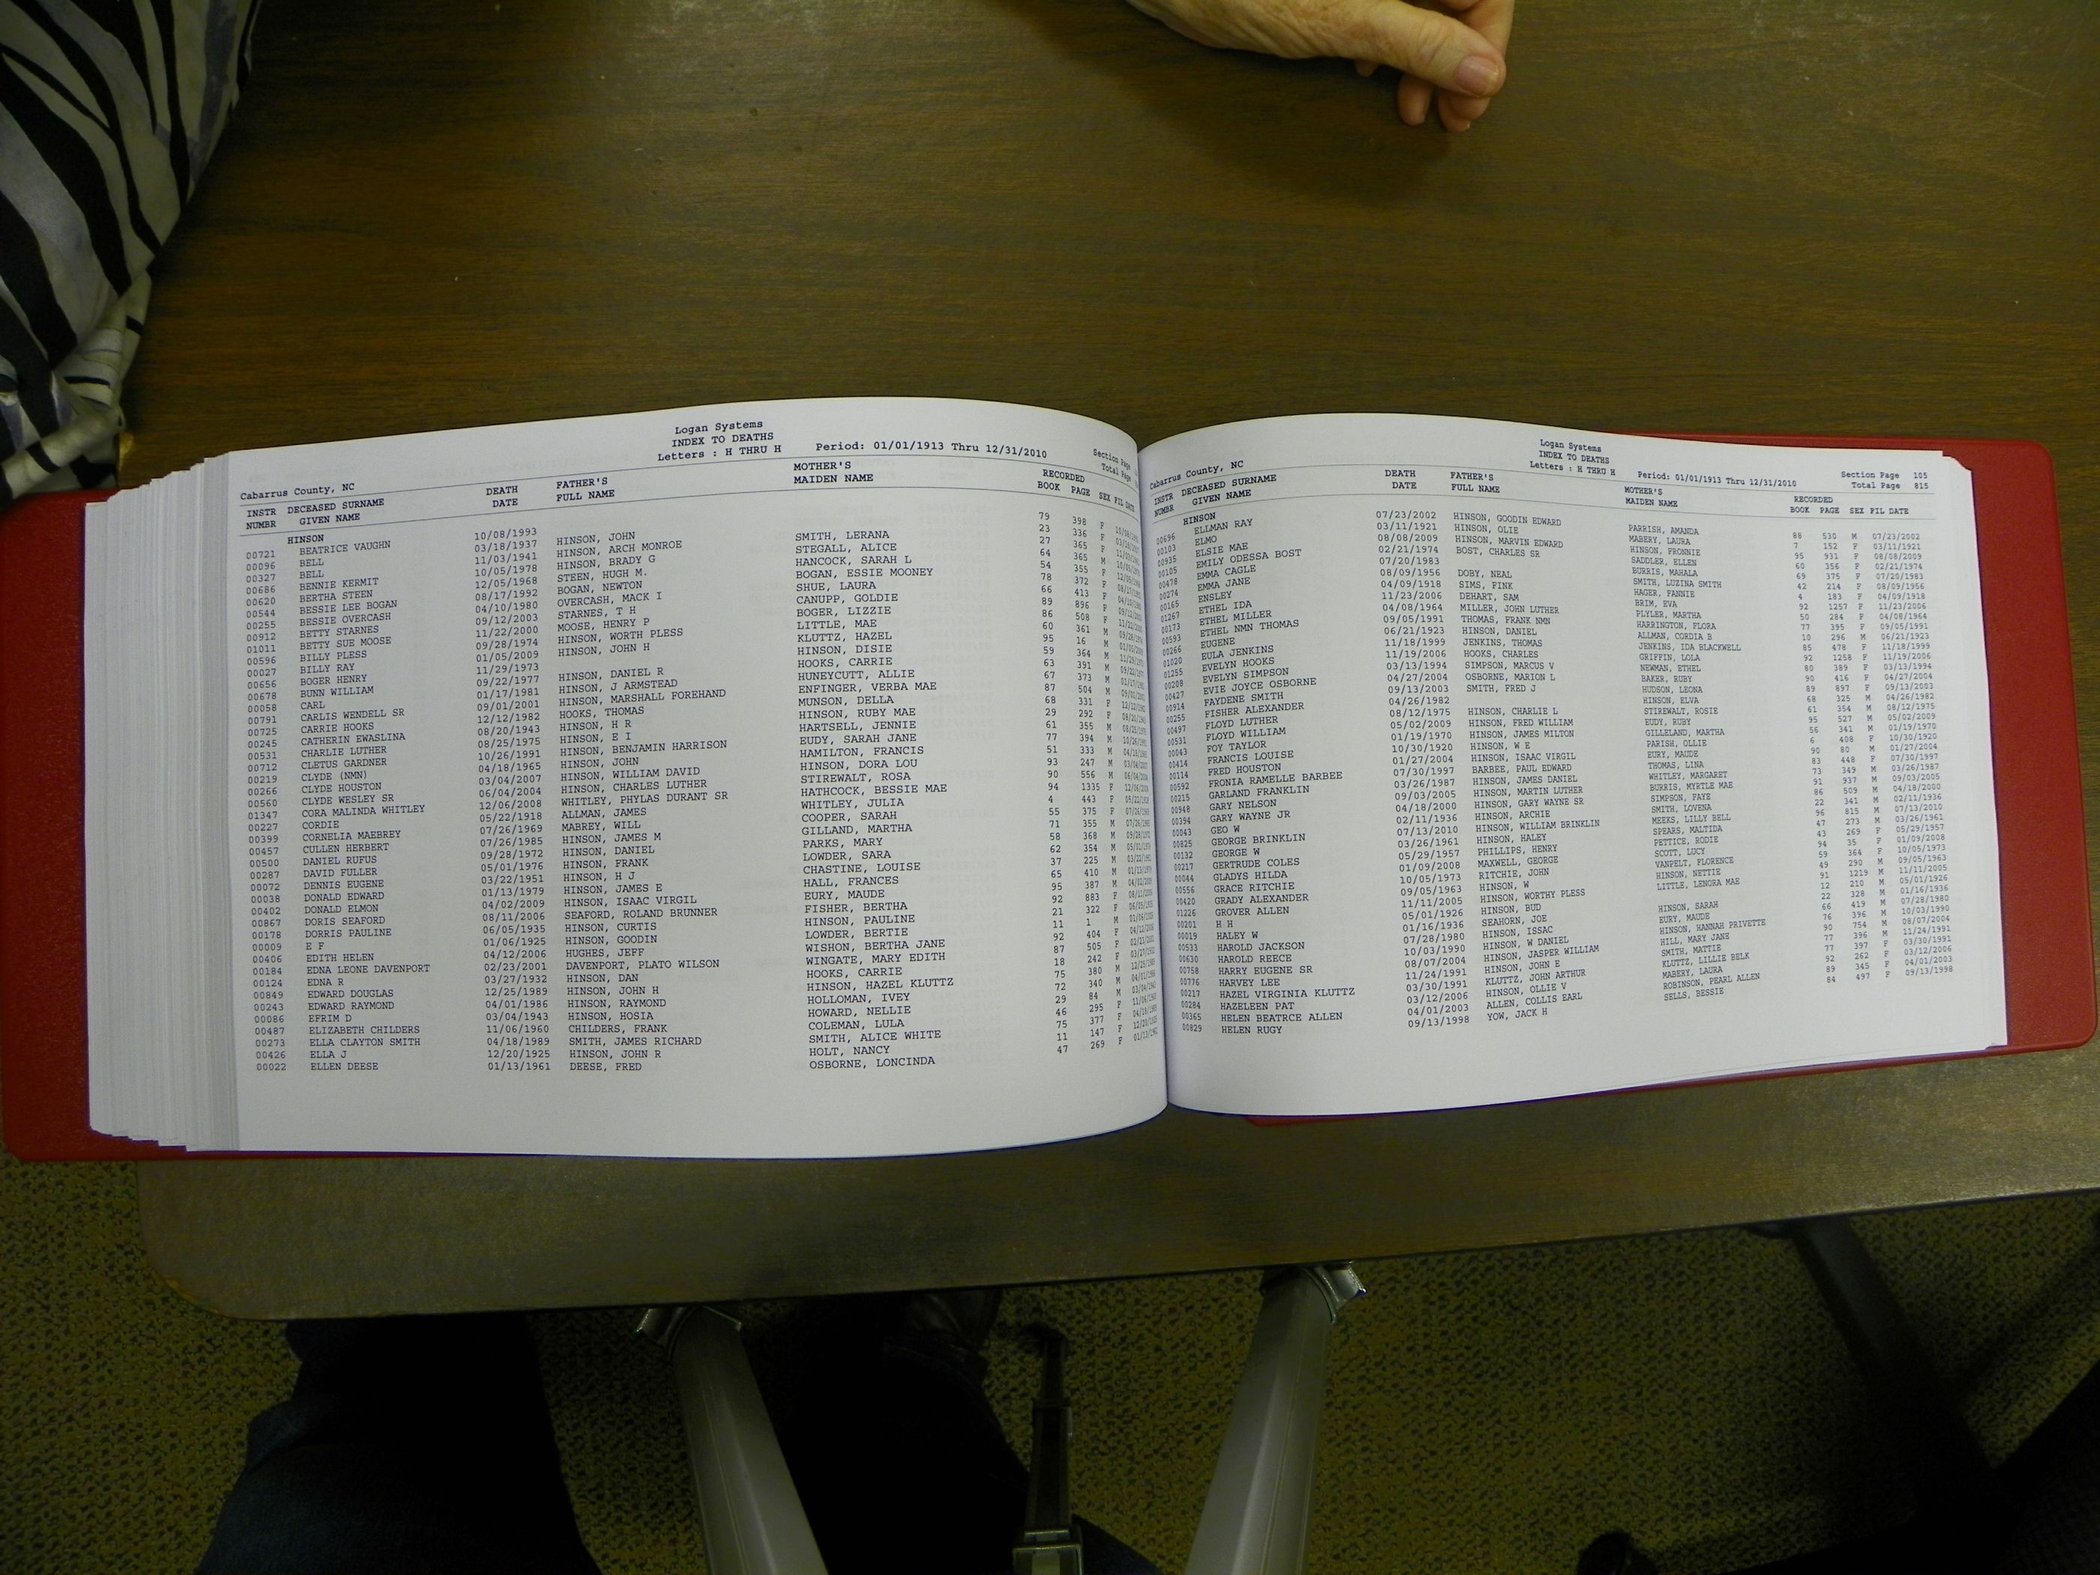 Logan Systems
INDEX TO DEATHS
Letters : H THRU H Period: 01/01/1913 Thru 12/31/2010
Section Page
Total Page
Cabarrus County, NC
INSTR DECEASED SURNAME DEATH FATHER'S MOTHER'S RECORDED
NUMBR GIVEN NAME DATE FULL NAME MAIDEN NAME BOOK PAGE SEX FIL DATE
HINSON
00721 BEATRICE VAUGHN 10/08/1993 79 398 F
00096 BELL 03/18/1937 HINSON, JOHN 23 336 F
00327 BELL 11/03/1941 HINSON, ARCH MONROE SMITH, LERANA 27 365
00686 BENNIE KERMIT 10/05/1978 HINSON, BRADY G STEGALL, ALICE 64 365 M
00620 BERTHA STEEN 12/05/1968 STEEN, HUGH M. HANCOCK, SARAH L 54 355 F
00544 BESSIE LEE BOGAN 08/17/1992 BOGAN, NEWTON BOGAN, ESSIE MOONEY 78 372 F
00255 BESSIE OVERCASH 04/10/1980 OVERCASH, MACK I SHUE, LAURA 66 413 F
00912 BETTY STARNES 09/12/2003 STARNES, T H CANUPP, GOLDIE 89 896 F
01011 BETTY SUE MOOSE 11/22/2000 MOOSE, HENRY P BOGER, LIZZIE 86 508 F
00596 BILLY PLESS 09/28/1974 HINSON, WORTH PLESS LITTLE, MAE 60 361 M
00027 BILLY RAY 01/05/2009 HINSON, JOHN H KLUTTZ, HAZEL 95 16 M
00656 BOGER HENRY 11/29/1973 HINSON, DISIE 59 364 M
00678 BUNN WILLIAM 09/22/1977 HINSON, DANIEL R HOOKS, CARRIE 63 391 M
00058 CARL 01/17/1981 HINSON, J ARMSTEAD HUNEYCUTT, ALLIE 67 373 M
00791 CARLIS WENDELL SR 09/01/2001 HINSON, MARSHALL FOREHAND ENFINGER, VERBA MAE 87 504 M
00725 CARRIE HOOKS 12/12/1982 HOOKS, THOMAS MUNSON, DELLA 68 331 F
00245 CATHERIN EWASLINA 08/20/1943 HINSON, H R HINSON, RUBY MAE 29 292 F
00531 CHARLIE LUTHER 08/25/1975 HINSON, E I HARTSELL, JENNIE 61 355 M
00712 CLETUS GARDNER 10/26/1991 HINSON, BENJAMIN HARRISON EUDY, SARAH JANE 77 394 M
00219 CLYDE (NMN) 04/18/1965 HINSON, JOHN HAMILTON, FRANCIS 51 333 M
00266 CLYDE HOUSTON 03/04/2007 HINSON, WILLIAM DAVID HINSON, DORA LOU 93 247 M
00560 CLYDE WESLEY SR 06/04/2004 HINSON, CHARLES LUTHER STIREWALT, ROSA 90 556 M
01347 CORA MALINDA WHITLEY 12/06/2008 WHITLEY, PHYLAS DURANT SR HATHCOCK, BESSIE MAE 94 1335 F
00227 CORDIE 05/22/1918 ALLMAN, JAMES WHITLEY, JULIA 4 443 F
00399 CORNELIA MAEBREY 07/26/1969 MABREY, WILL COOPER, SARAH 55 375 F
00457 CULLEN HERBERT 07/26/1985 HINSON, JAMES M GILLAND, MARTHA 71
00500 DANIEL RUFUS 09/28/1972 HINSON, DANIEL PARKS, MARY 58 368 M
00287 DAVID FULLER 05/01/1976 HINSON, FRANK LOWDER, SARA 62 354 M
00072 DENNIS EUGENE 03/22/1951 HINSON, H J CHASTINE, LOUISE 37 225 M
00038 DONALD EDWARD 01/13/1979 HINSON, JAMES E HALL, FRANCES 65 410 M
00402 DONALD ELMON 04/02/2009 HINSON, ISAAC VIRGIL EURY, MAUDE 95 387 M
00867 DORIS SEAFORD 08/11/2006 SEAFORD, ROLAND BRUNNER FISHER, BERTHA 92 883 F
00178 DORRIS PAULINE 06/05/1935 HINSON, CURTIS HINSON, PAULINE 21 322 F
00009 E F 01/06/1925 HINSON, GOODIN LOWDER, BERTIE 11 1 M
00406 EDITH HELEN 04/12/2006 HUGHES, JEFF WISHON, BERTHA JANE 92 404 F
00184 EDNA LEONE DAVENPORT 02/23/2001 DAVENPORT, PLATO WILSON WINGATE, MARY EDITH 87 505 F
00124 EDNA R 03/27/1932 HINSON, DAN HOOKS, CARRIE 18 242 F
00849 EDWARD DOUGLAS 12/25/1989 HINSON, JOHN H HINSON, HAZEL KLUTTZ 75 380 M
00243 EDWARD RAYMOND 04/01/1986 HINSON, RAYMOND HOLLOMAN, IVEY 72 340 M
00086 EFRIM D 03/04/1943 HINSON, HOSIA HOWARD, NELLIE 29 84 M
00487 ELIZABETH CHILDERS 11/06/1960 CHILDERS, FRANK COLEMAN, LULA 46 295 F
00273 ELLA CLAYTON SMITH 04/18/1989 SMITH, JAMES RICHARD SMITH, ALICE WHITE 75 377 F
00426 ELLA J 12/20/1925 HINSON, JOHN R HOLT, NANCY 11 147 F
00022 ELLEN DEESE 01/13/1961 DEESE, FRED OSBORNE, LONCINDA 47 269 F
Logan Systems
INDEX TO DEATHS
Letters : H THRU H Period: 01/01/1913 Thru 12/31/2010
Section Page 105
Total Page 815
Cabarrus County, NC
INSTR DECEASED SURNAME DEATH FATHER'S MOTHER'S RECORDED
NUMBR GIVEN NAME DATE FULL NAME MAIDEN NAME BOOK PAGE SEX FIL DATE
HINSON
00696 ELLMAN RAY 07/23/2002 HINSON, GOODIN EDWARD PARRISH, AMANDA 88 530 M 07/23/2002
00103 ELMO 03/11/1921 HINSON, OLIE MABERY, LAURA 7 152 F 03/11/1921
00935 ELSIE MAE 08/08/2009 HINSON, MARVIN EDWARD HINSON, FRONNIE 95 931 F 08/08/2009
00105 EMILY ODESSA BOST 02/21/1974 BOST, CHARLES SR SADDLER, ELLEN 60 356 F 02/21/1974
00478 EMMA CAGLE 07/20/1983 BURRIS, MAHALA 69 375 F 07/20/1983
00274 EMMA JANE 08/09/1956 DOBY, NEAL SMITH, LUZINA SMITH 42 214 F 08/09/1956
00165 ENSLEY 04/09/1918 SIMS, FINK HAGER, FANNIE 4 183 F 04/09/1918
01267 ETHEL IDA 11/23/2006 DEHART, SAM BRIM, EVA 92 1257 F 11/23/2006
00173 ETHEL MILLER 04/08/1964 MILLER, JOHN LUTHER PLYLER, MARTHA 50 284 F 04/08/1964
00593 ETHEL NMN THOMAS 09/05/1991 THOMAS, FRANK NMN HARRINGTON, FLORA 77 395 F 09/05/1991
00266 EUGENE 06/21/1923 HINSON, DANIEL ALLMAN, CORDIA B 10 296 M 06/21/1923
01020 EULA JENKINS 11/18/1999 JENKINS, THOMAS JENKINS, IDA BLACKWELL 85 478 F 11/18/1999
01255 EVELYN HOOKS 11/19/2006 HOOKS, CHARLES GRIFFIN, LOLA 92 1258 F 11/19/2006
00208 EVELYN SIMPSON 03/13/1994 SIMPSON, MARCUS V NEWMAN, ETHEL 80 389 F 03/13/1994
00427 EVIE JOYCE OSBORNE 04/27/2004 OSBORNE, MARION L BAKER, RUBY 90 416 F 04/27/2004
00914 FAYDENE SMITH 09/13/2003 SMITH, FRED J HUDSON, LEONA 89 897 F 09/13/2003
00255 FISHER ALEXANDER 04/26/1982 HINSON, ELVA 68 325 M 04/26/1982
00497 FLOYD LUTHER 08/12/1975 HINSON, CHARLIE L STIREWALT, ROSIE 61 354 M 08/12/1975
00531 FLOYD WILLIAM 05/02/2009 HINSON, FRED WILLIAM EUDY, RUBY 95 527 M 05/02/2009
00043 FOY TAYLOR 01/19/1970 HINSON, JAMES MILTON GILLELAND, MARTHA 56 341 M 01/19/1970
00414 FRANCIS LOUISE 10/30/1920 HINSON, W E PARISH, OLLIE 6 408 F 10/30/1920
00114 FRED HOUSTON 01/27/2004 HINSON, ISAAC VIRGIL EURY, MAUDE 90 80 M 01/27/2004
00592 FRONIA RAMELLE BARBEE 07/30/1997 BARBEE, PAUL EDWARD THOMAS, LINA 83 448 F 07/30/1997
00215 GARLAND FRANKLIN 03/26/1987 HINSON, JAMES DANIEL WHITLEY, MARGARET 73 349 M 03/26/1987
00948 GARY NELSON 09/03/2005 HINSON, MARTIN LUTHER BURRIS, MYRTLE MAE 91 937 M 09/03/2005
00394 GARY WAYNE JR 04/18/2000 HINSON, GARY WAYNE SR SIMPSON, FAYE 86 509 M 04/18/2000
00043 GEO W 02/11/1936 HINSON, ARCHIE SMITH, LOVENA 22 341 M 02/11/1936
00825 GEORGE BRINKLIN 07/13/2010 HINSON, WILLIAM BRINKLIN MEEKS, LILLY BELL 96 815 M 07/13/2010
00132 GEORGE W 03/26/1961 HINSON, HALEY SPEARS, MALTIDA 47 273 M 03/26/1961
00217 GERTRUDE COLES 05/29/1957 PHILLIPS, HENRY PETTICE, RODIE 43 269 F 05/29/1957
00044 GLADYS HILDA 01/09/2008 MAXWELL, GEORGE SCOTT, LUCY 94 35 F 01/09/2008
00556 GRACE RITCHIE 10/05/1973 RITCHIE, JOHN VANPELT, FLORENCE 59 364 F 10/05/1973
00420 GRADY ALEXANDER 09/05/1963 HINSON, W HINSON, NETTIE 49 290 M 09/05/1963
01226 GROVER ALLEN 11/11/2005 HINSON, WORTHY PLESS LITTLE, LENORA MAE 91 1219 M 11/11/2005
00201 H H 05/01/1926 HINSON, BUD 12 210 M 05/01/1926
00019 HALEY W 01/16/1936 SEAHORN, JOE HINSON, SARAH 22 328 M 01/16/1936
00533 HAROLD JACKSON 07/28/1980 HINSON, ISSAC EURY, MAUDE 66 419 M 07/28/1980
00630 HAROLD REECE 10/03/1990 HINSON, W DANIEL HINSON, HANNAH PRIVETTE 76 396 M 10/03/1990
00758 HARRY EUGENE SR 08/07/2004 HINSON, JASPER WILLIAM HILL, MARY JANE 90 754 M 08/07/2004
00776 HARVEY LEE 11/24/1991 HINSON, JOHN E SMITH, MATTIE 77 396 M 11/24/1991
00217 HAZEL VIRGINIA KLUTTZ 03/30/1991 KLUTTZ, JOHN ARTHUR KLUTTZ, LILLIE BELK 77 397 F 03/30/1991
00284 HAZELEEN PAT 03/12/2006 HINSON, OLLIE V MABERY, LAURA 92 262 F 03/12/2006
00365 HELEN BEATRCE ALLEN 04/01/2003 ALLEN, COLLIS EARL ROBINSON, PEARL ALLEN 89 345 F 04/01/2003
00829 HELEN RUGY 09/13/1998 YOW, JACK H SELLS, BESSIE 84 497 F 09/13/1998